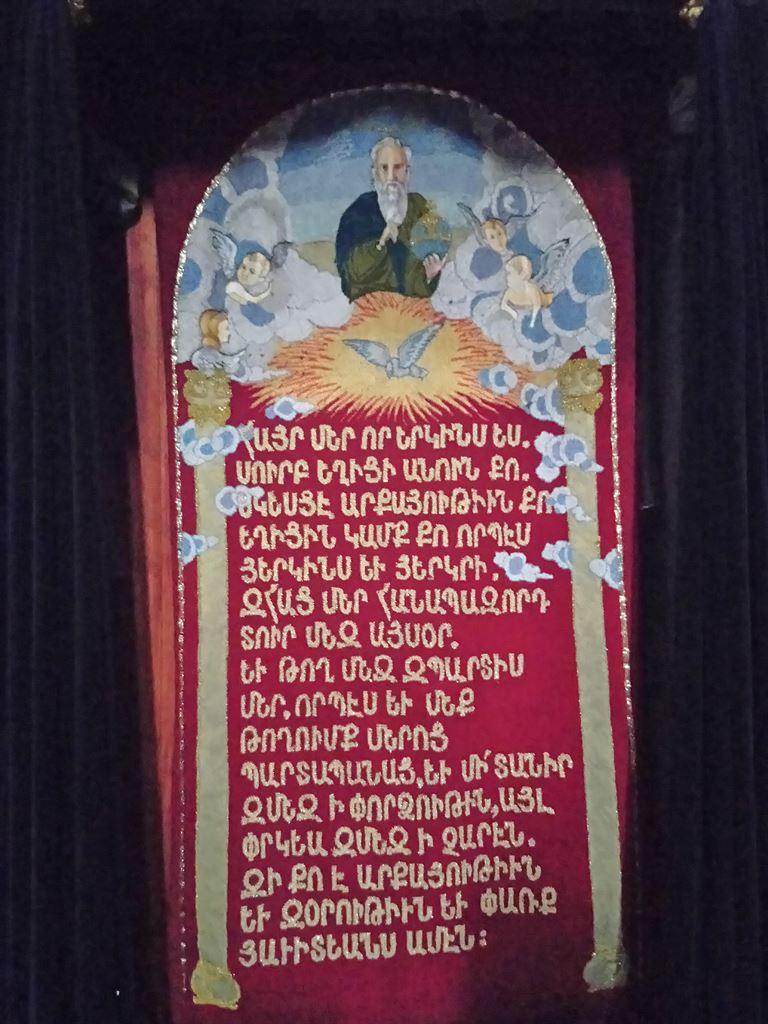 ՀԱՅՐ ՄԵՐ ՈՐ ԵՐԿԻՆՍ ԵՍ.
ՍՈՒՐԲ ԵՂԻՑԻ ԱՆՈՒՆ ՔՈ.
ԵԿԵՍՑԷ ԱՐՔԱՅՈՒԹԻՒՆ ՔՈ
ԵՂԻՑԻՆ ԿԱՄՔ ՔՈ ՈՐՊԷՍ
ՅԵՐԿԻՆՍ ԵՒ ՅԵՐԿՐԻ.
ԶՀԱՑ ՄԵՐ ՀԱՆԱՊԱԶՈՐԴ
ՏՈՒՐ ՄԵԶ ԱՅՍՕՐ.
ԵՒ ԹՈՂ ՄԵԶ ԶՊԱՐՏԻՍ
ՄԵՐ, ՈՐՊԷՍ ԵՒ ՄԵՔ
ԹՈՂՈՒՄՔ ՄԵՐՈՑ
ՊԱՐՏԱՊԱՆԱՑ, ԵՒ ՄԻ՛ ՏԱՆԻՐ
ԶՄԵԶ Ի ՓՈՐՁՈՒԹԻՆ, ԱՅԼ
ՓՐԿԵԱ ԶՄԵԶ Ի ՉԱՐԷՆ.
ԶԻ ՔՈ Է ԱՐՔԱՅՈՒԹԻՒՆ
ԵՒ ԶՕՐՈՒԹԻՒՆ ԵՒ ՓԱՌՔ
ՅԱՒԻՏԵԱՆՍ ԱՄԷՆ: